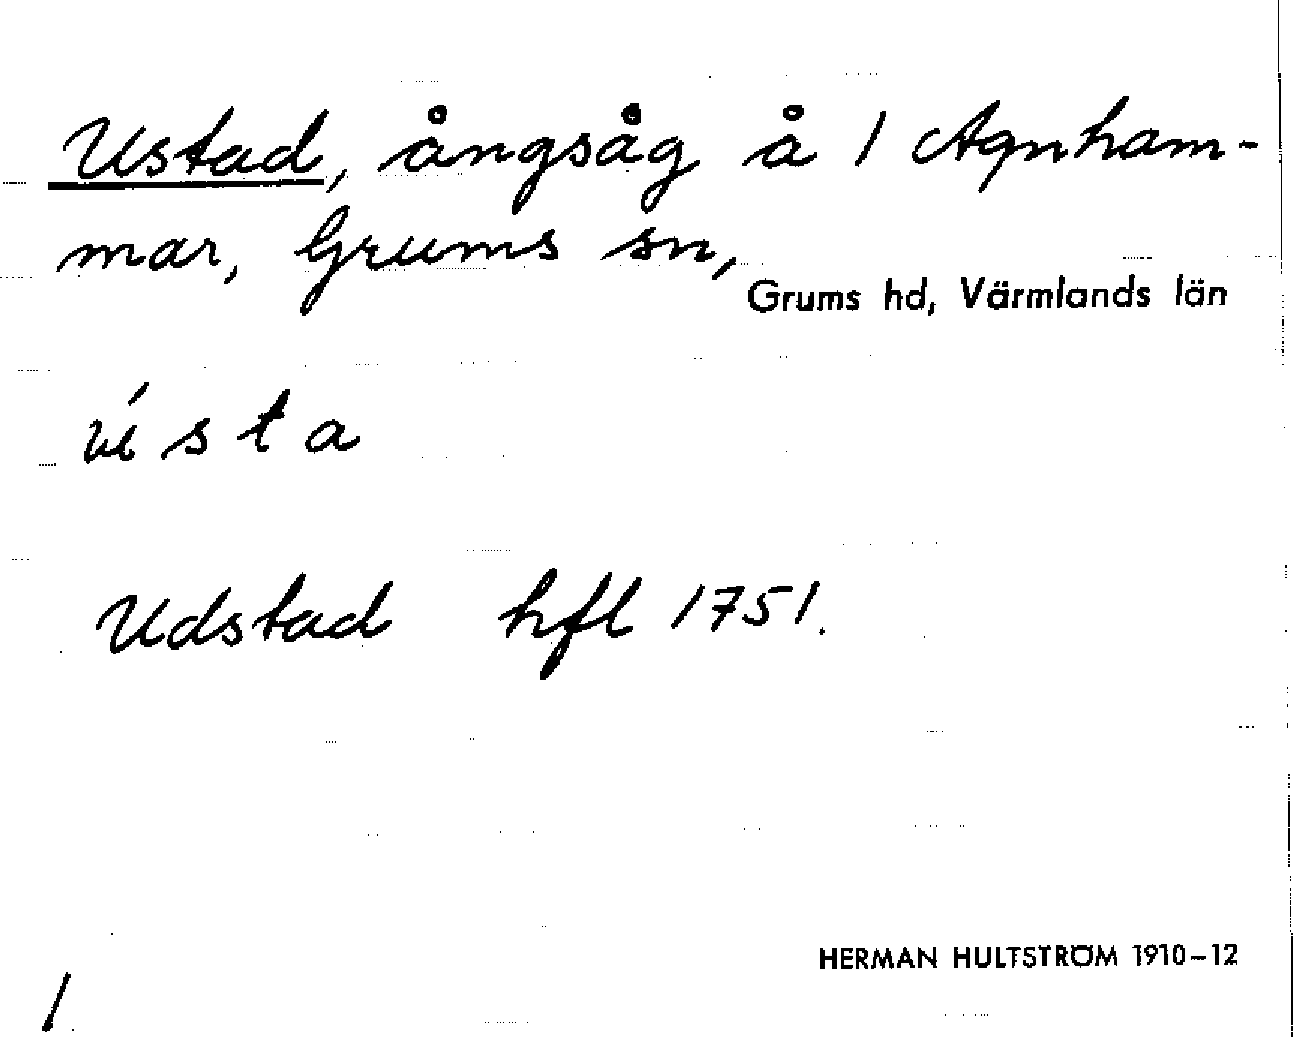 Ustad, ångsåg å 1 Agnham-
mar, Grums sn,
Grums hd, Värmlands län
ústa
Udstad hfl 1751.
HERMAN HULTSTRÖM 1910-12
1